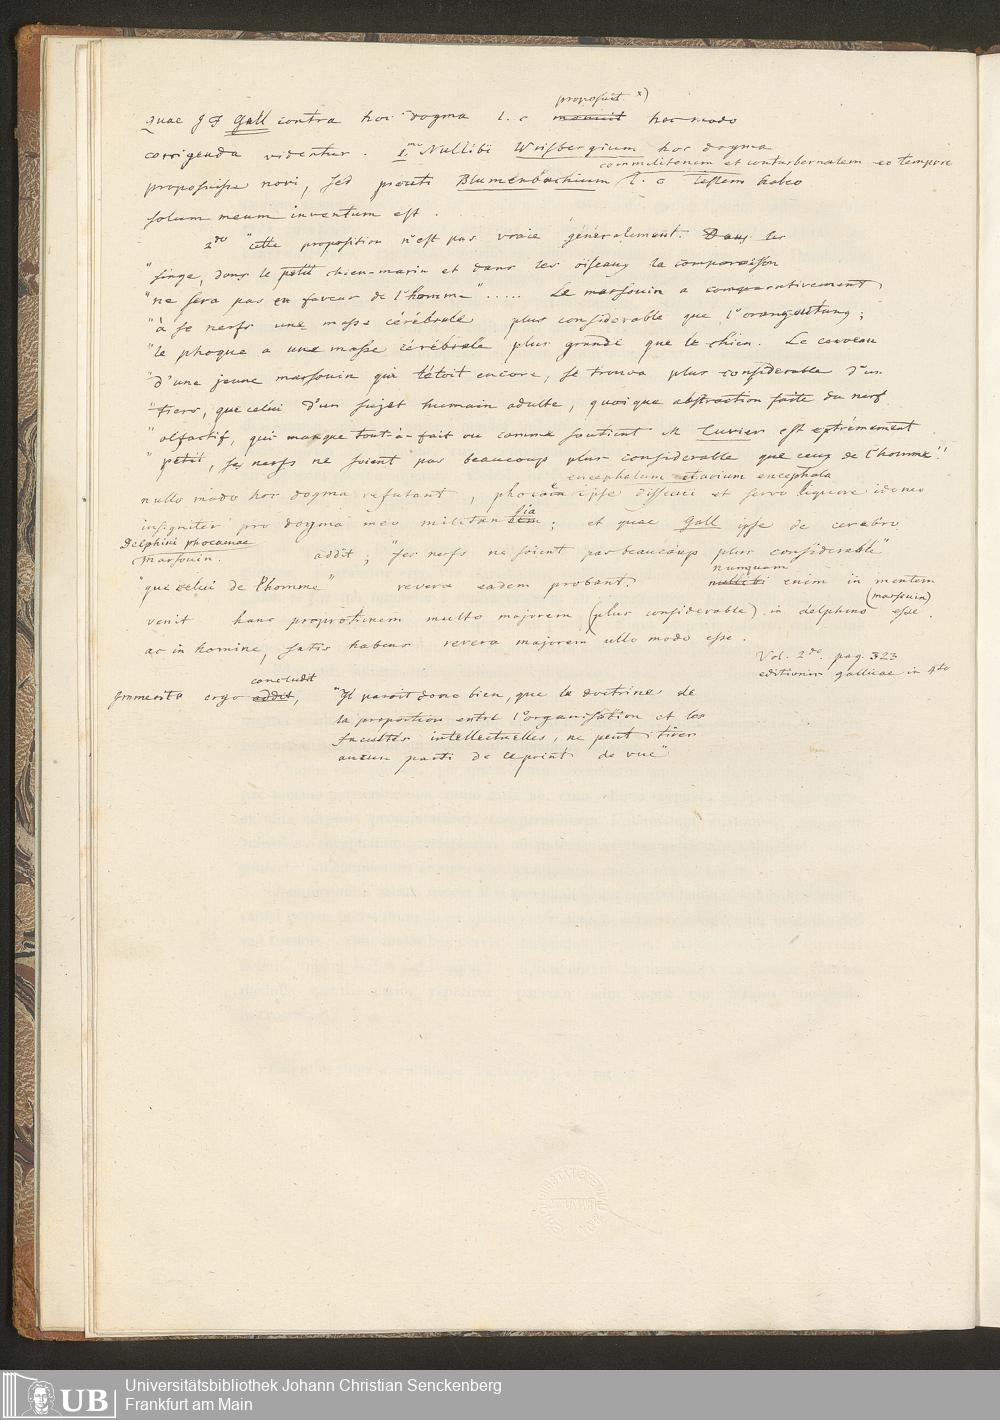 Quae J F Gall contra hoc dogma l. c. proposuit x) monuit hoc modo
corrigenda videntur. 1.mo Nullibi Wrisbergium hoc dogma
commilitonem et contubernalem eo tempore
proposuisse novi, sed prouti Blumenbachium l. c. testem habeo
solum meum inventum est.
2do "cette proposition n'est pas vraie généralement. Dans les
"singe, dans le petit chien-marin et dans les oiseaux la comparaison
"ne sera pas en faveur de l'homme" ..... Le marsouin a comparativement
"à se nerfs une masse cérébrale plus considerable que l'orang-outang;
"le phoque a une masse cérébrale plus grande que le chien. Le cerveau
"d'une jeune marsouin qui tétoit encore, se trouva plus considerable d'un
"tiers, que celui d'un sujet humain adulte, quoique abstraction faite du nerf
"olfactif, qui manque tout-à-fait ou comme soutient M Cuvier est extrémement
"petit, ses nerfs ne soient pas beaucoup plus considerable que ceux de l'homme"!
encephalum etiam encephala
nullo modo hoc dogma refutant, phocam ipse dissecui et servo liquore idoneo
insigniter pro dogma meo militantia; et quae Gall ipse de cerebro
Delphini phocaenae
Marsouin. addit; "ses nerfs ne soient pas beaucoup plus considerable"
"que celui de l'homme" revera eadem probant. numquam nullibi enim in mentem
venit hanc proprotionem multo majorem (plus considerable) in delphino (marsouin) esse
ac in homine, satis habens revera majorem ullo modo esse.
Vol. 2de. pag. 323
editionis gallicae in 4to
Immerito ergo concludit addit, "Il paroit donc bien, que la doctrine de
la proportion entre l'organisation et les
facultés intellectuelles, ne peut tirer
aucun parti de ce point de vue"
Universitätsbibliothek Johann Christian Senckenberg
Frankfurt am Main
UB